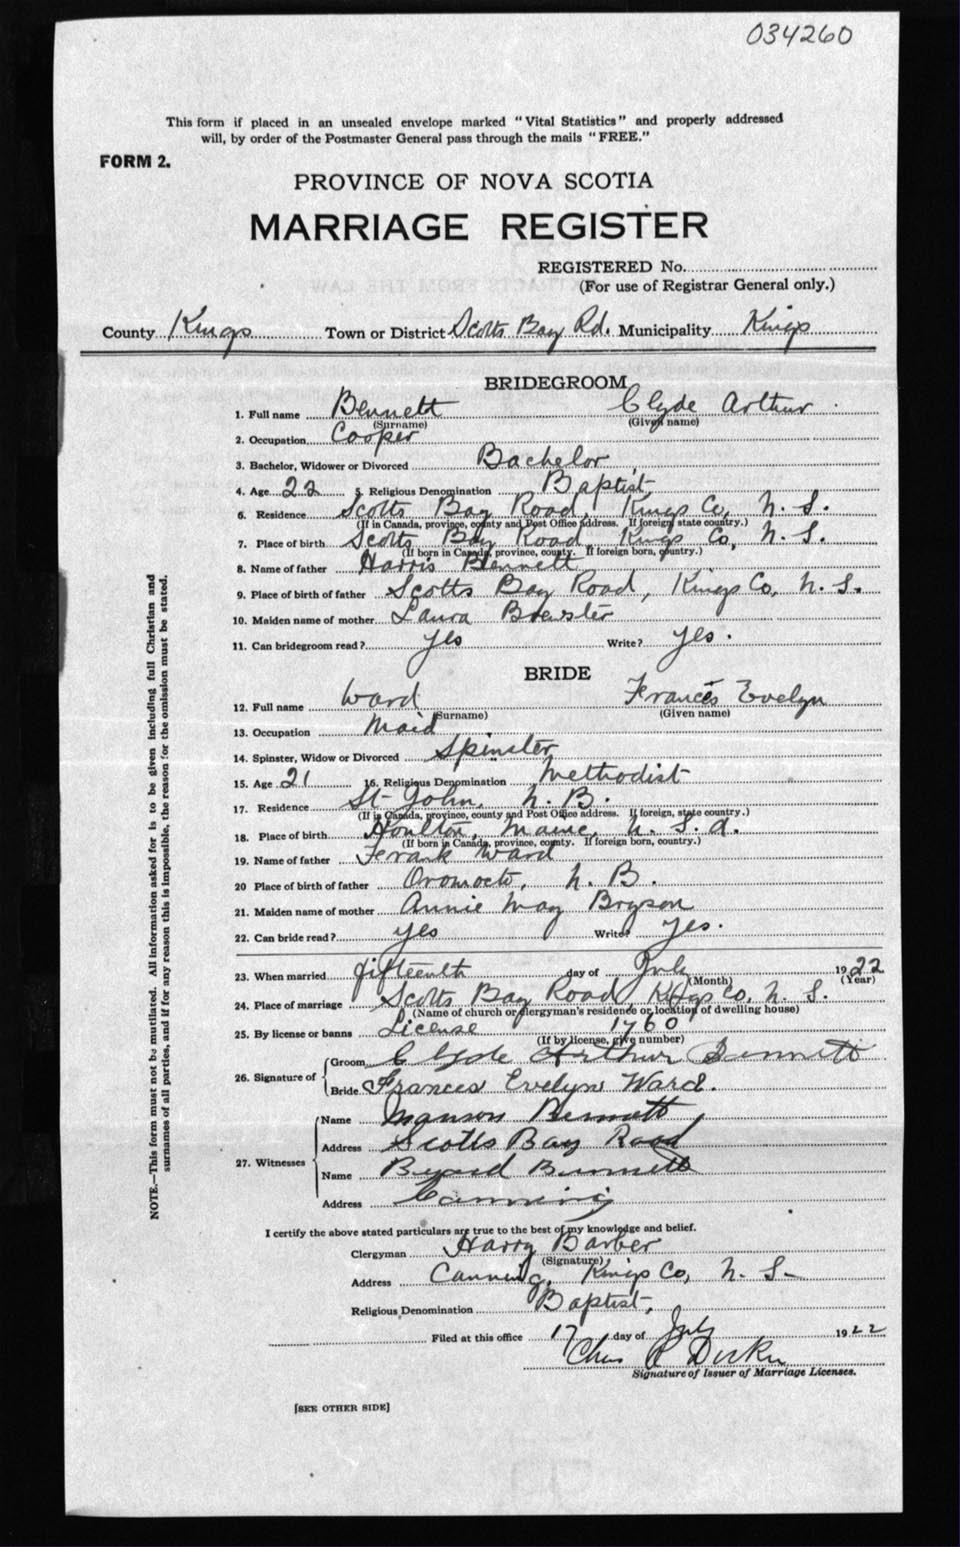 034260
This form if placed in an unsealed envelope marked "Vital Statistics" and properly addressed
will, by order of the Postmaster General pass through the mails "FREE."
FORM 2.
PROVINCE OF NOVA SCOTIA
MARRIAGE REGISTER
REGISTERED No.
(For use of Registrar General only.)
County Kings Town or District Scotts Bay Rd. Municipality Kings
BRIDEGROOM
1. Full name Bennett Clyde Arthur
(Surname) (Given name)
2. Occupation Cooper
3. Bachelor, Widower or Divorced Bachelor
4. Age 22 5. Religious Denomination Baptist
6. Residence Scotts Bay Road, Kings Co, N. S.
(If in Canada, province, county and Post Office address. If foreign state country.)
7. Place of birth Scotts Bay Road Kings Co, N. S.
(If born in Canada, province, county. If foreign born, country.)
8. Name of father Harris Bennett
9. Place of birth of father Scotts Bay Road, Kings Co, N. S.
10. Maiden name of mother Laura Brewster
11. Can bridegroom read? yes Write? yes.
BRIDE
12. Full name Ward Frances Evelyn
(Surname) (Given name)
13. Occupation Maid
14. Spinster, Widow or Divorced Spinster
15. Age 21 16. Religious Denomination Methodist
17. Residence St John, N. B.
(If in Canada, province, county and Post Office address. If foreign, state country.)
18. Place of birth Houlton, Maine, U. S. A.
(If born in Canada, province, county. If foreign born, country.)
19. Name of father Frank Ward
20 Place of birth of father Oromocto, N. B.
21. Maiden name of mother Annie May Bryson
22. Can bride read? yes Write? yes.
23. When married fifteenth day of July 1922
(Month) (Year)
24. Place of marriage Scotts Bay Road, Kings Co, N. S.
(Name of church or clergyman's residence or location of dwelling house)
25. By license or banns License 1760
(If by license, give number)
26. Signature of Groom Clyde Arthur Bennett
Bride Frances Evelyn Ward.
27. Witnesses
Name Manson Bennett
Address Scotts Bay Road
Name Byard Bennett
Address Canning
I certify the above stated particulars are true to the best of my knowledge and belief.
Clergyman Harry Barber
(Signature)
Address Canning, Kings Co, N. S.
Religious Denomination Baptist,
Filed at this office 17 day of July 1922
Chas R
Signature of Issuer of Marriage Licenses.
[SEE OTHER SIDE]
NOTE.—This form must not be mutilated. All information asked for is to be given including full Christian and
surnames of all parties, and if for any reason this is impossible, the reason for the omission must be stated.